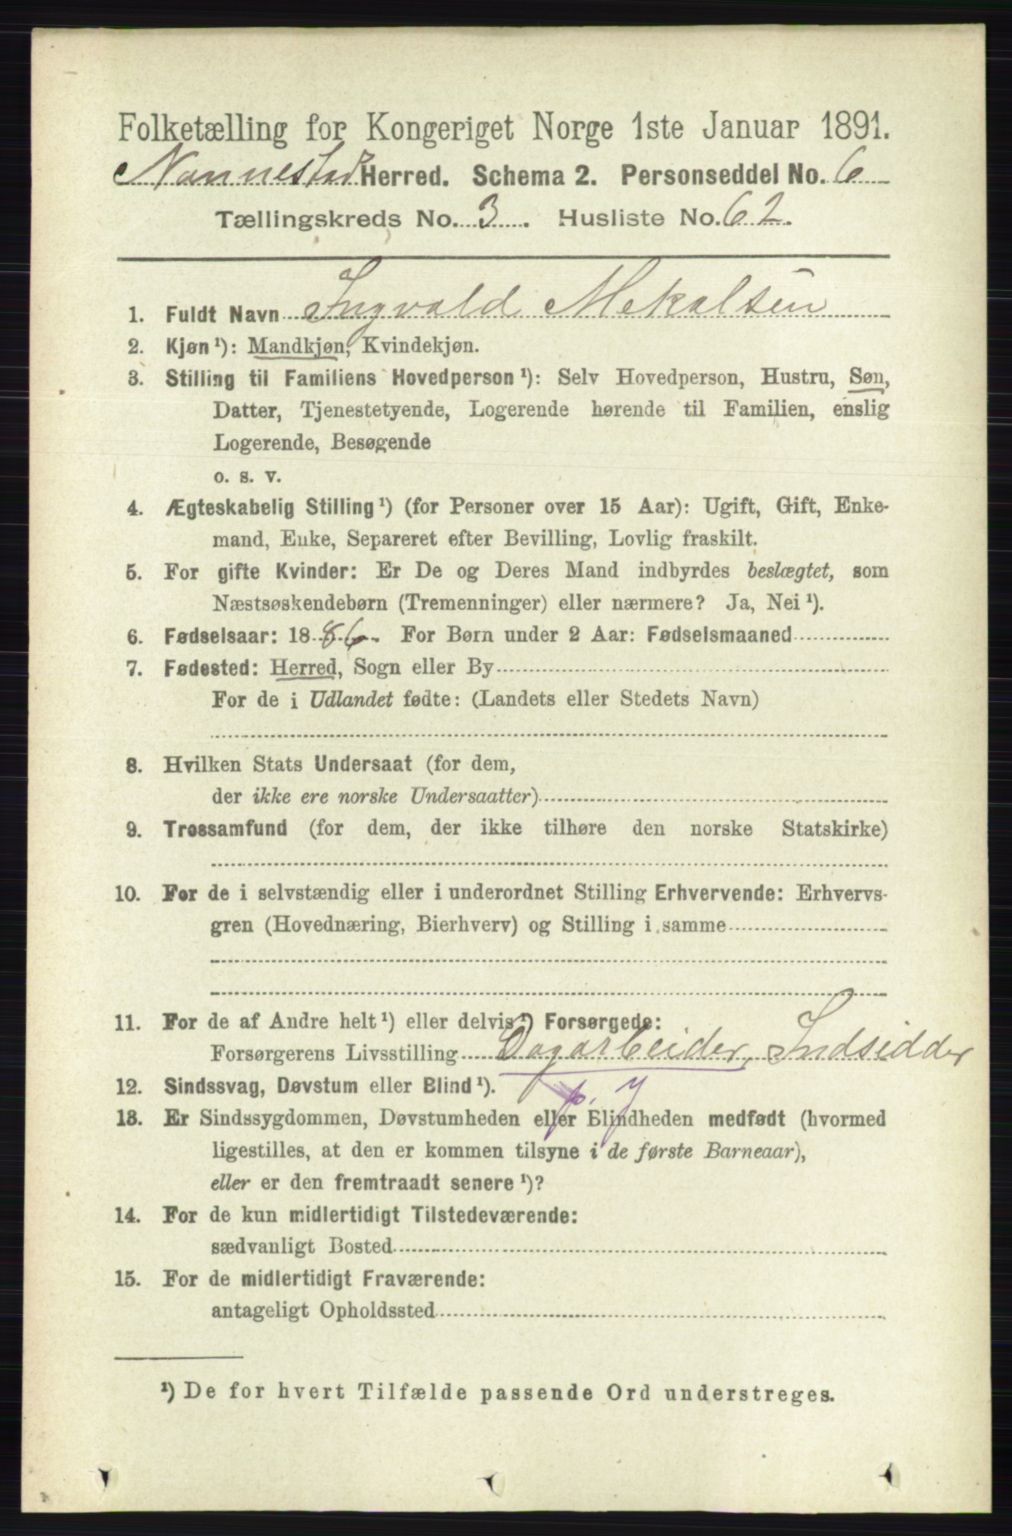 Folketælling for Kongeriget Norge 1ste Januar 1891.
Nannestad Herred. Schema 2. Personseddel No. 6
Tællingskreds No. 3. Husliste No. 62.
1. Fuldt Navn Ingvald Mekalsen
2. Kjøn ¹): Mandkjøn, Kvindekjøn.
3. Stilling til Familiens Hovedperson ¹): Selv Hovedperson, Hustru, Søn,
Datter, Tjenestetyende, Logerende hørende til Familien, enslig
Logerende, Besøgende
o. s. v.
4. Ægteskabelig Stilling ¹) (for Personer over 15 Aar): Ugift, Gift, Enke-
mand, Enke, Separeret efter Bevilling, Lovlig fraskilt.
5. For gifte Kvinder: Er De og Deres Mand indbyrdes beslægtet, som
Næstsøskendebørn (Tremenninger) eller nærmere? Ja, Nei ¹).
6. Fødselsaar: 1886. For Børn under 2 Aar: Fødselsmaaned
7. Fødested: Herred, Sogn eller By
For de i Udlandet fødte: (Landets eller Stedets Navn)
8. Hvilken Stats Undersaat (for dem,
der ikke ere norske Undersaatter)
9. Trossamfund (for dem, der ikke tilhøre den norske Statskirke)
10. For de i selvstændig eller i underordnet Stilling Erhvervende: Erhvervs-
gren (Hovednæring, Bierhverv) og Stilling i samme
11. For de af Andre helt ¹) eller delvis ¹) Forsørgede:
Forsørgerens Livsstilling Dagarbeider, Indsidder
12. Sindssvag, Døvstum eller Blind ¹). p. y
13. Er Sindssygdommen, Døvstumheden eller Blindheden medfødt (hvormed
ligestilles, at den er kommen tilsyne i de første Barneaar),
eller er den fremtraadt senere ¹)?
14. For de kun midlertidigt Tilstedeværende:
sædvanligt Bosted
15. For de midlertidigt Fraværende:
antageligt Opholdssted
¹) De for hvert Tilfælde passende Ord understreges.